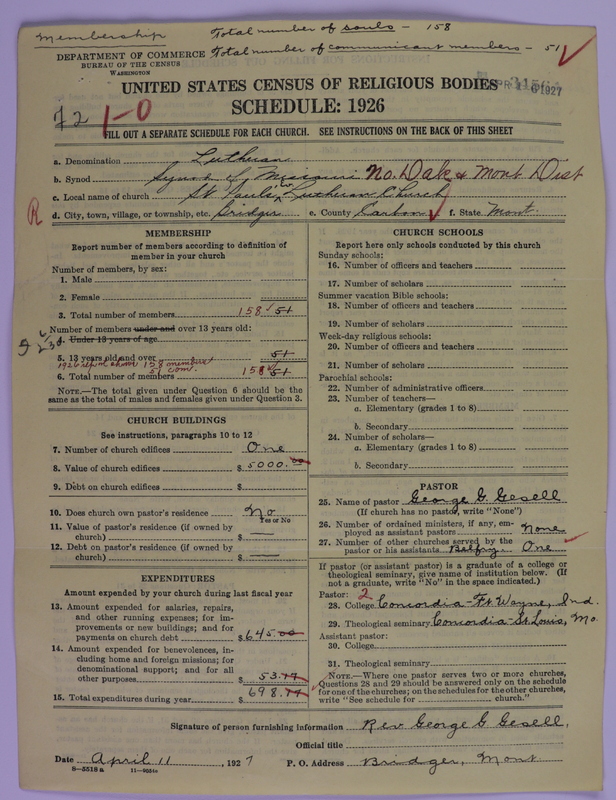 Membership
Total number of souls - 158
Total number of communicant members - 51
DEPARTMENT OF COMMERCE
BUREAU OF THE CENSUS
WASHINGTON
UNITED STATES CENSUS OF RELIGIOUS BODIES
SCHEDULE: 1926
1927
1-0
FILL OUT A SEPARATE SCHEDULE FOR EACH CHURCH. SEE INSTRUCTIONS ON THE BACK OF THIS SHEET
a. Denomination Lutheran
b. Synod Synod of Missouri No. Dak & Mont Dist
c. Local name of church St Pauls Lutheran Church
R
d. City, town, village, or township, etc. Bridger e. County Carbon f. State Mont.
MEMBERSHIP
Report number of members according to definition of
member in your church
Number of members, by sex:
1. Male
2. Female
3. Total number of members 158 51
Number of members under and over 13 years old:
4. Under 13 years of age
5. 13 years old and over 51
6. Total number of members 158 51
NOTE.—The total given under Question 6 should be
same as the total of males and females given under Question 3.
CHURCH BUILDINGS
See instructions, paragraphs 10 to 12
7. Number of church edifices One
8. Value of church edifices $ 5000.00
9. Debt on church edifices $
10. Does church own pastor's residence? No
Yes or No
11. Value of pastor's residence (if owned by
church) $ —
12. Debt on pastor's residence (if owned by
church) $ —
EXPENDITURES
Amount expended by your church during last fiscal year
13. Amount expended for salaries, repairs,
and other running expenses; for im-
provements or new buildings; and for
payments on church debt $ 645.00
14. Amount expended for benevolences, in-
cluding home and foreign missions; for
denominational support; and for all
other purposes $ 53.77
15. Total expenditures during year $ 698.77
CHURCH SCHOOLS
Report here only schools conducted by this church
Sunday schools:
16. Number of officers and teachers
17. Number of scholars
Summer vacation Bible schools:
18. Number of officers and teachers
19. Number of scholars
Week-day religious schools:
20. Number of officers and teachers
21. Number of scholars
Parochial schools:
22. Number of administrative officers
23. Number of teachers—
a. Elementary (grades 1 to 8)
b. Secondary
24. Number of scholars—
a. Elementary (grades 1 to 8)
b. Secondary
PASTOR
25. Name of pastor George G. Gesell
(If church has no pastor, write "None")
26. Number of ordained ministers, if any, em-
ployed as assistant pastors None
27. Number of other churches served by the
pastor or his assistants Belfry One
If pastor (or assistant pastor) is a graduate of a college or
theological seminary, give name of institution below. (If
not a graduate, write "No" in the space indicated.)
Pastor: 2
28. College Concordia-Ft Wayne, Ind.
29. Theological seminary Concordia-St Louis, Mo.
Assistant pastor:
30. College
31. Theological seminary
NOTE.—Where one pastor serves two or more churches,
Questions 28 and 29 should be answered only on the schedule
for one of the churches; on the schedules for the other churches,
write "See schedule for church."
Signature of person furnishing information Rev George G Gesell.
Official title
Date April 11, 1927 P. O. Address Bridger, Mont
8-5518 a 11-9054a